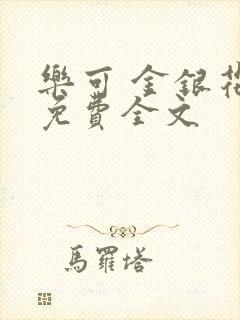 樂可 金銀花
免費全文
馬羅塔